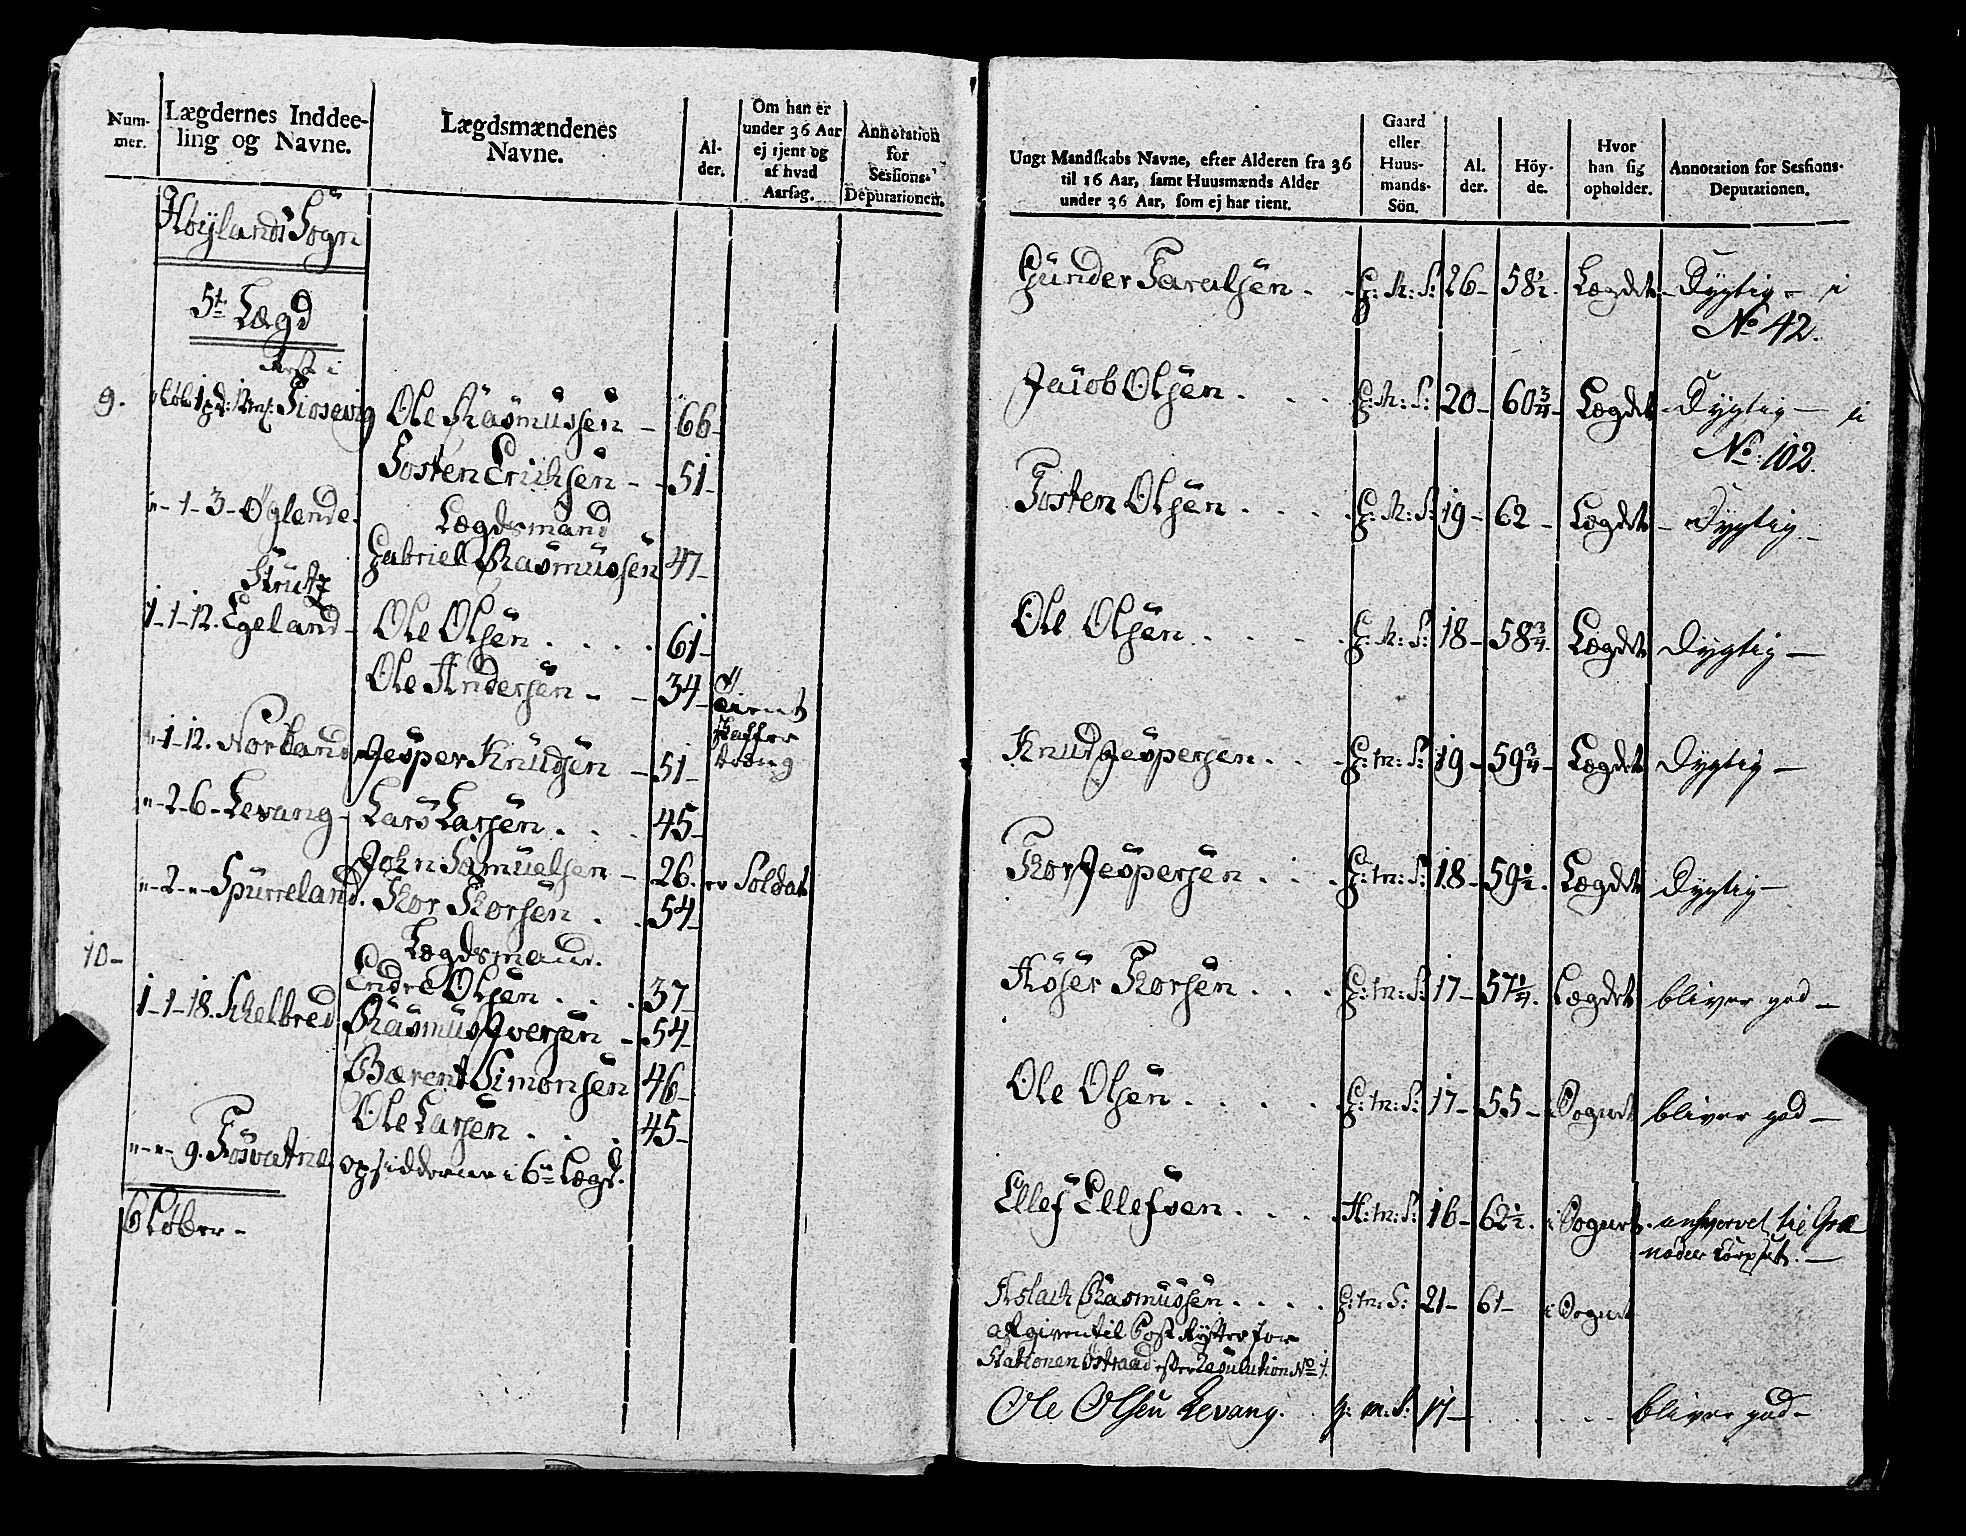 Num-
mer.
Lægdernes Inddee-
ling og Navne.
Lægdsmændenes
Navne.
Al-
der.
Om han er
under 36 Aar
ej tjent og
af hvad
Aarsag.
Annotation
for
Sessions-
Deputationen.
Höylands Sogn
5te Lægd
Rest i
9. Tiosevig Ole Rasmussen - 66-
Tosten Erichsen - - 51-
"- 1- 3- Öglende. Lægdsmand
Gabriel Rasmussen 47-
Strutz
1-1-12. Egeland- Ole Olsen . . . . 61-
Ole Andersen - - 34-
"-1-12. Norland Jesper Knudsen - 51-
"-2-6-Levang- Lars Larsen . . . 45-
John Samuelsen - 26. Soldat
"-2-"-Spurreland. Thor Thorsen . . 54-
10- Lægdsmand.
Endre Olsen . . . 37-
1-1-18. Schelbred Rasmus Iversen - 54-
Bærent Simonsen 46-
Ole Larsen . . . 45-
"-"-9. Fosvatne opsidderne i 6te Lægd.
6 Löber-
Ungt Mandskabs Navne, efter Alderen fra 36
til 16 Aar, samt Huusmænds Alder
under 36 Aar, som ej har tient.
Gaard
eller
Huus-
mands-
Sön.
Al-
der.
Höy-
de.
Hvor
han sig
opholder.
Annotation for Sessions-
Deputationen.
Gunder Taralsen . . G: M: S: 26- 58½. Lægdet- Dygtig- i
No 42.
Jacob Olsen . . . . G: M: S: 20- 60¾- Lægdet- Dygtig- i
No: 102.
Tosten Olsen . . . . G: M: S: 19- 62- Lægdet- Dygtig-
Ole Olsen . . . . G: M: S: 18- 58¾. Lægdet Dygtig-
Knud Jespersen . . . G: m: S: 19- 59¾- Lægdet Dygtig-
Thor Jespersen . . . G: m: S: 18- 59½. Lægdet Dygtig-
Aser Thorsen . . . G: m: S: 17- 57¼. Lægdet bliver god-
Ole Olsen . . . . . G: m: S: 17- 55- i Sognet bliver god-
Ellef Ellefsen . . . H: m: S: 16- 62½. i Sognet. anhvervet til Gre
nadeer Corpset.-
Aslach Rasmussen . . . . G: m: S: 21- 61- i Sognet
afgiven til Post Rytter for
Stationen Östraad efter Resulution No 1.
Ole Olsen Levang. . g. m. S. 17- . . . . . bliver god-